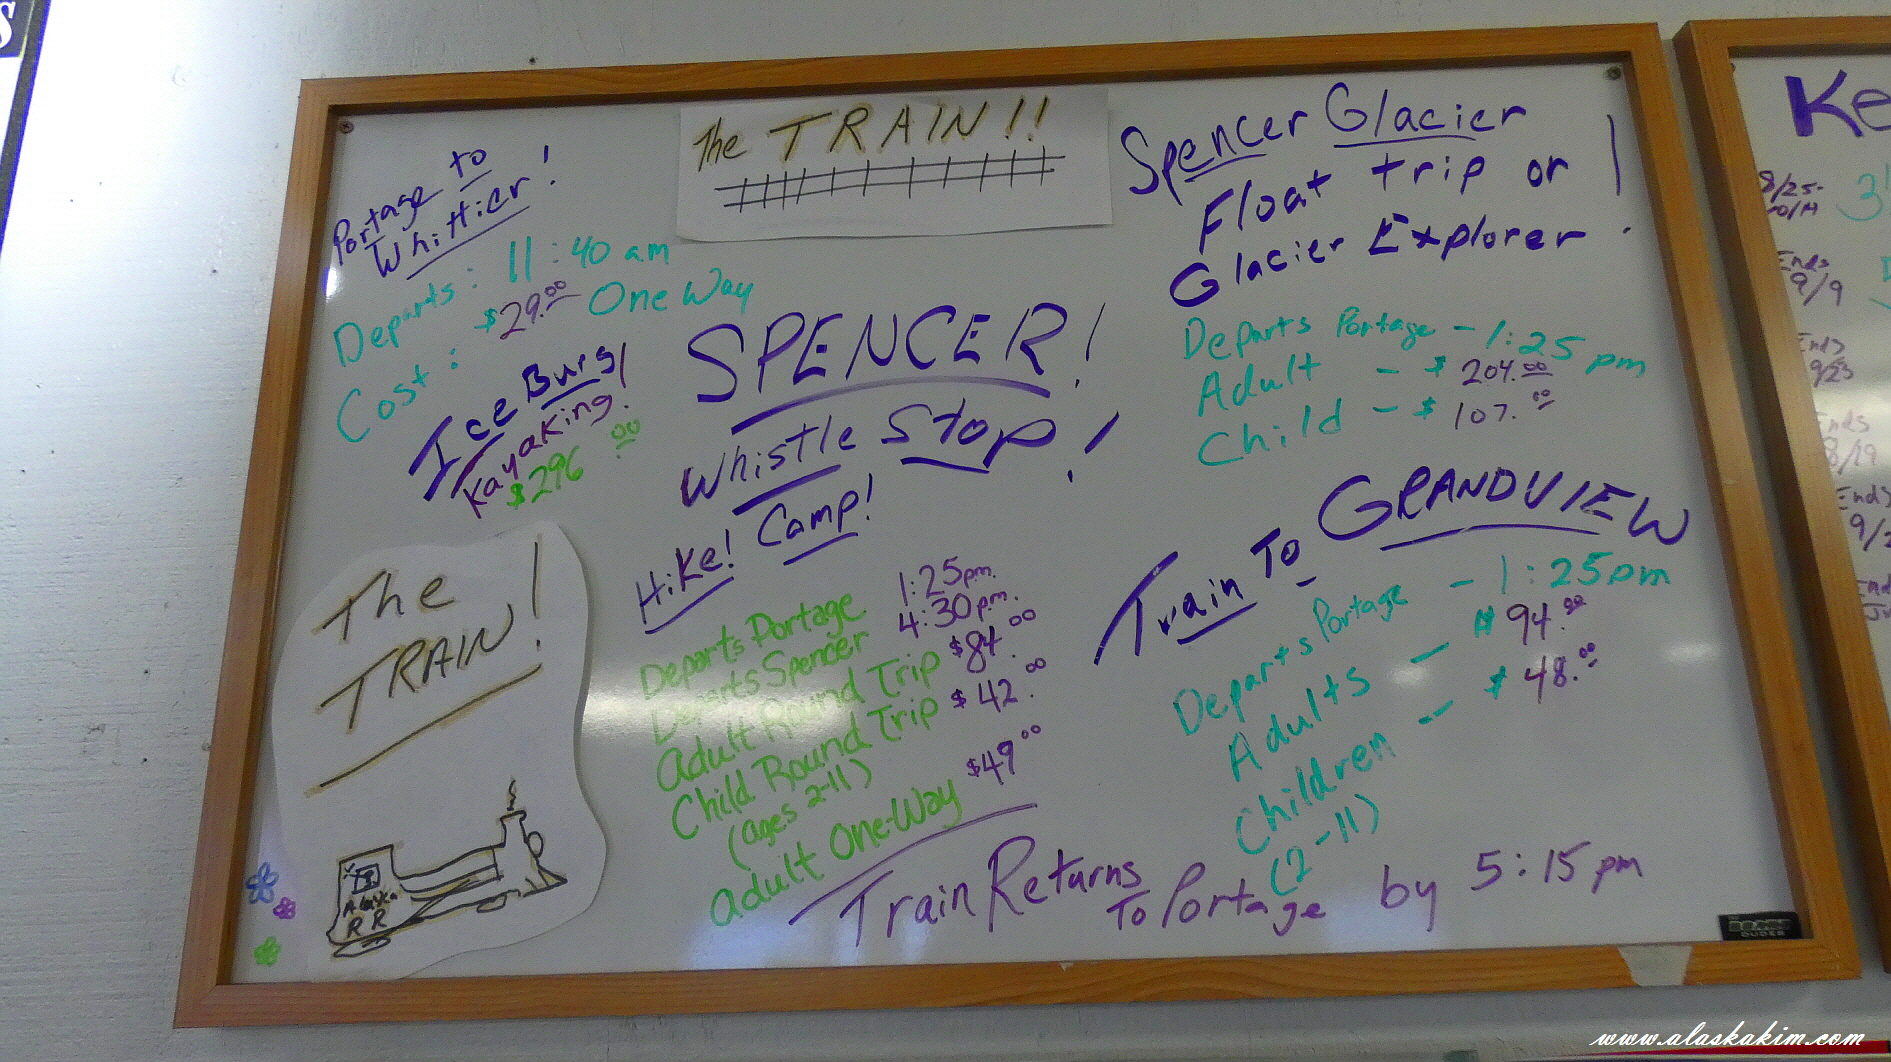 S
The TRAIN!!
Portage to
Whittier!
Departs: 11:40 am
Cost: $29.00 One Way
Ice Burg
Kayaking!
$296.00
The
TRAIN!
Alaska
RR
SPENCER!
Whistle Stop!
Hike! Camp!
Departs Portage 1:25pm.
Departs Spencer 4:30pm.
Adult Round Trip $84.00
Child Round Trip $42.00
(ages 2-11)
Adult One-Way $49.00
Spencer Glacier
Float trip or
Glacier Explorer!
Departs Portage - 1:25 pm
Adult - $204.00
Child - $107.00
Train To GRANDVIEW
Departs Portage - 1:25pm
Adults - $94.00
Children - $48.00
(2-11)
Train Returns
To Portage by 5:15pm
Ke
8/25-
Ends
9/9
Ends
9/23
Ends
8/19
Ends
www.alaskakim.com